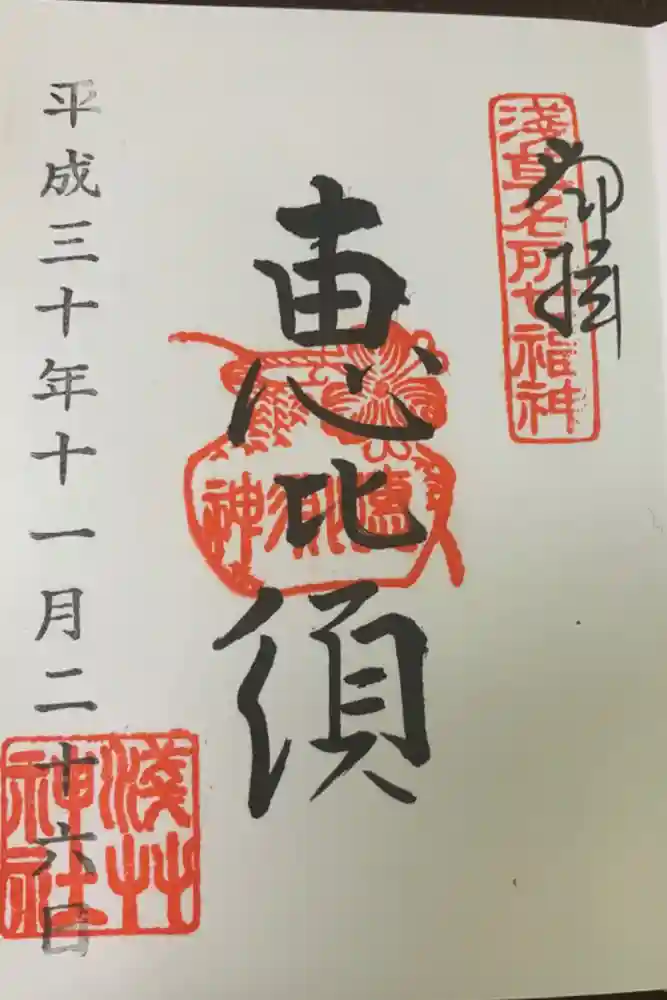 浅草名所七福神
恵比須
恵比須神
平成三十年十一月二十六日
浅草神社